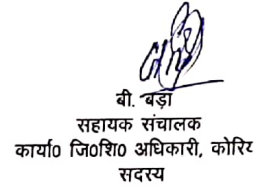 बी. बड़ा
सहायक संचालक
कार्या० जि०शि० अधिकारी, कोरिय
सदस्य